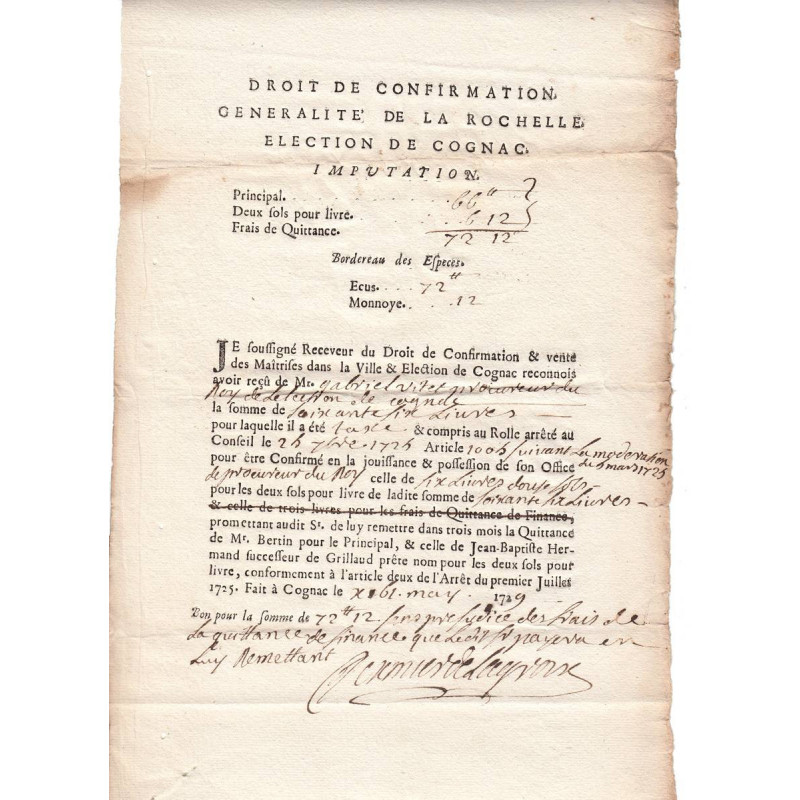 DROIT DE CONFIRMATION.
GENERALITE' DE LA ROCHELLE.
ELECTION DE COGNAC.
IMPUTATION.
Principal. 66ᵗᵗ
Deux sols pour livre. 6 12
Frais de Quittance. 72 12
Bordereau des Especes.
Ecus. 72ᵗᵗ
Monnoye. 12
JE soussigné Receveur du Droit de Confirmation & vente
des Maîtrises dans la Ville & Election de Cognac reconnois
avoir reçû de Mr. gabriel procureur du
Roy de Lelection de
la somme de soixante six Livres
pour laquelle il a été taxé & compris au Rolle arrêté au
Conseil le 26 7bre 1726 Article 1006 suivant La moderation
du 6 mars 1725
pour être Confirmé en la jouissance & possession de son Office
de procureur du Roy celle de six Livres douse sols
pour les deux sols pour livre de ladite somme de soixante six Livres
& celle de trois livres pour les frais de Quittance de Finance,
promettant audit Sr. de luy remettre dans trois mois la Quittance
de Mr. Bertin pour le Principal, & celle de Jean-Baptiste Her-
mand successeur de Grillaud prête nom pour les deux sols pour
livre, conformement à l'article deux de l'Arrêt du premier Juillet
1725. Fait à Cognac le may 1729
Bon pour la somme de 72ᵗᵗ 12 sans prejudice des frais de
La quittance de finance que Ledit Sr payera en
Luy Remettant